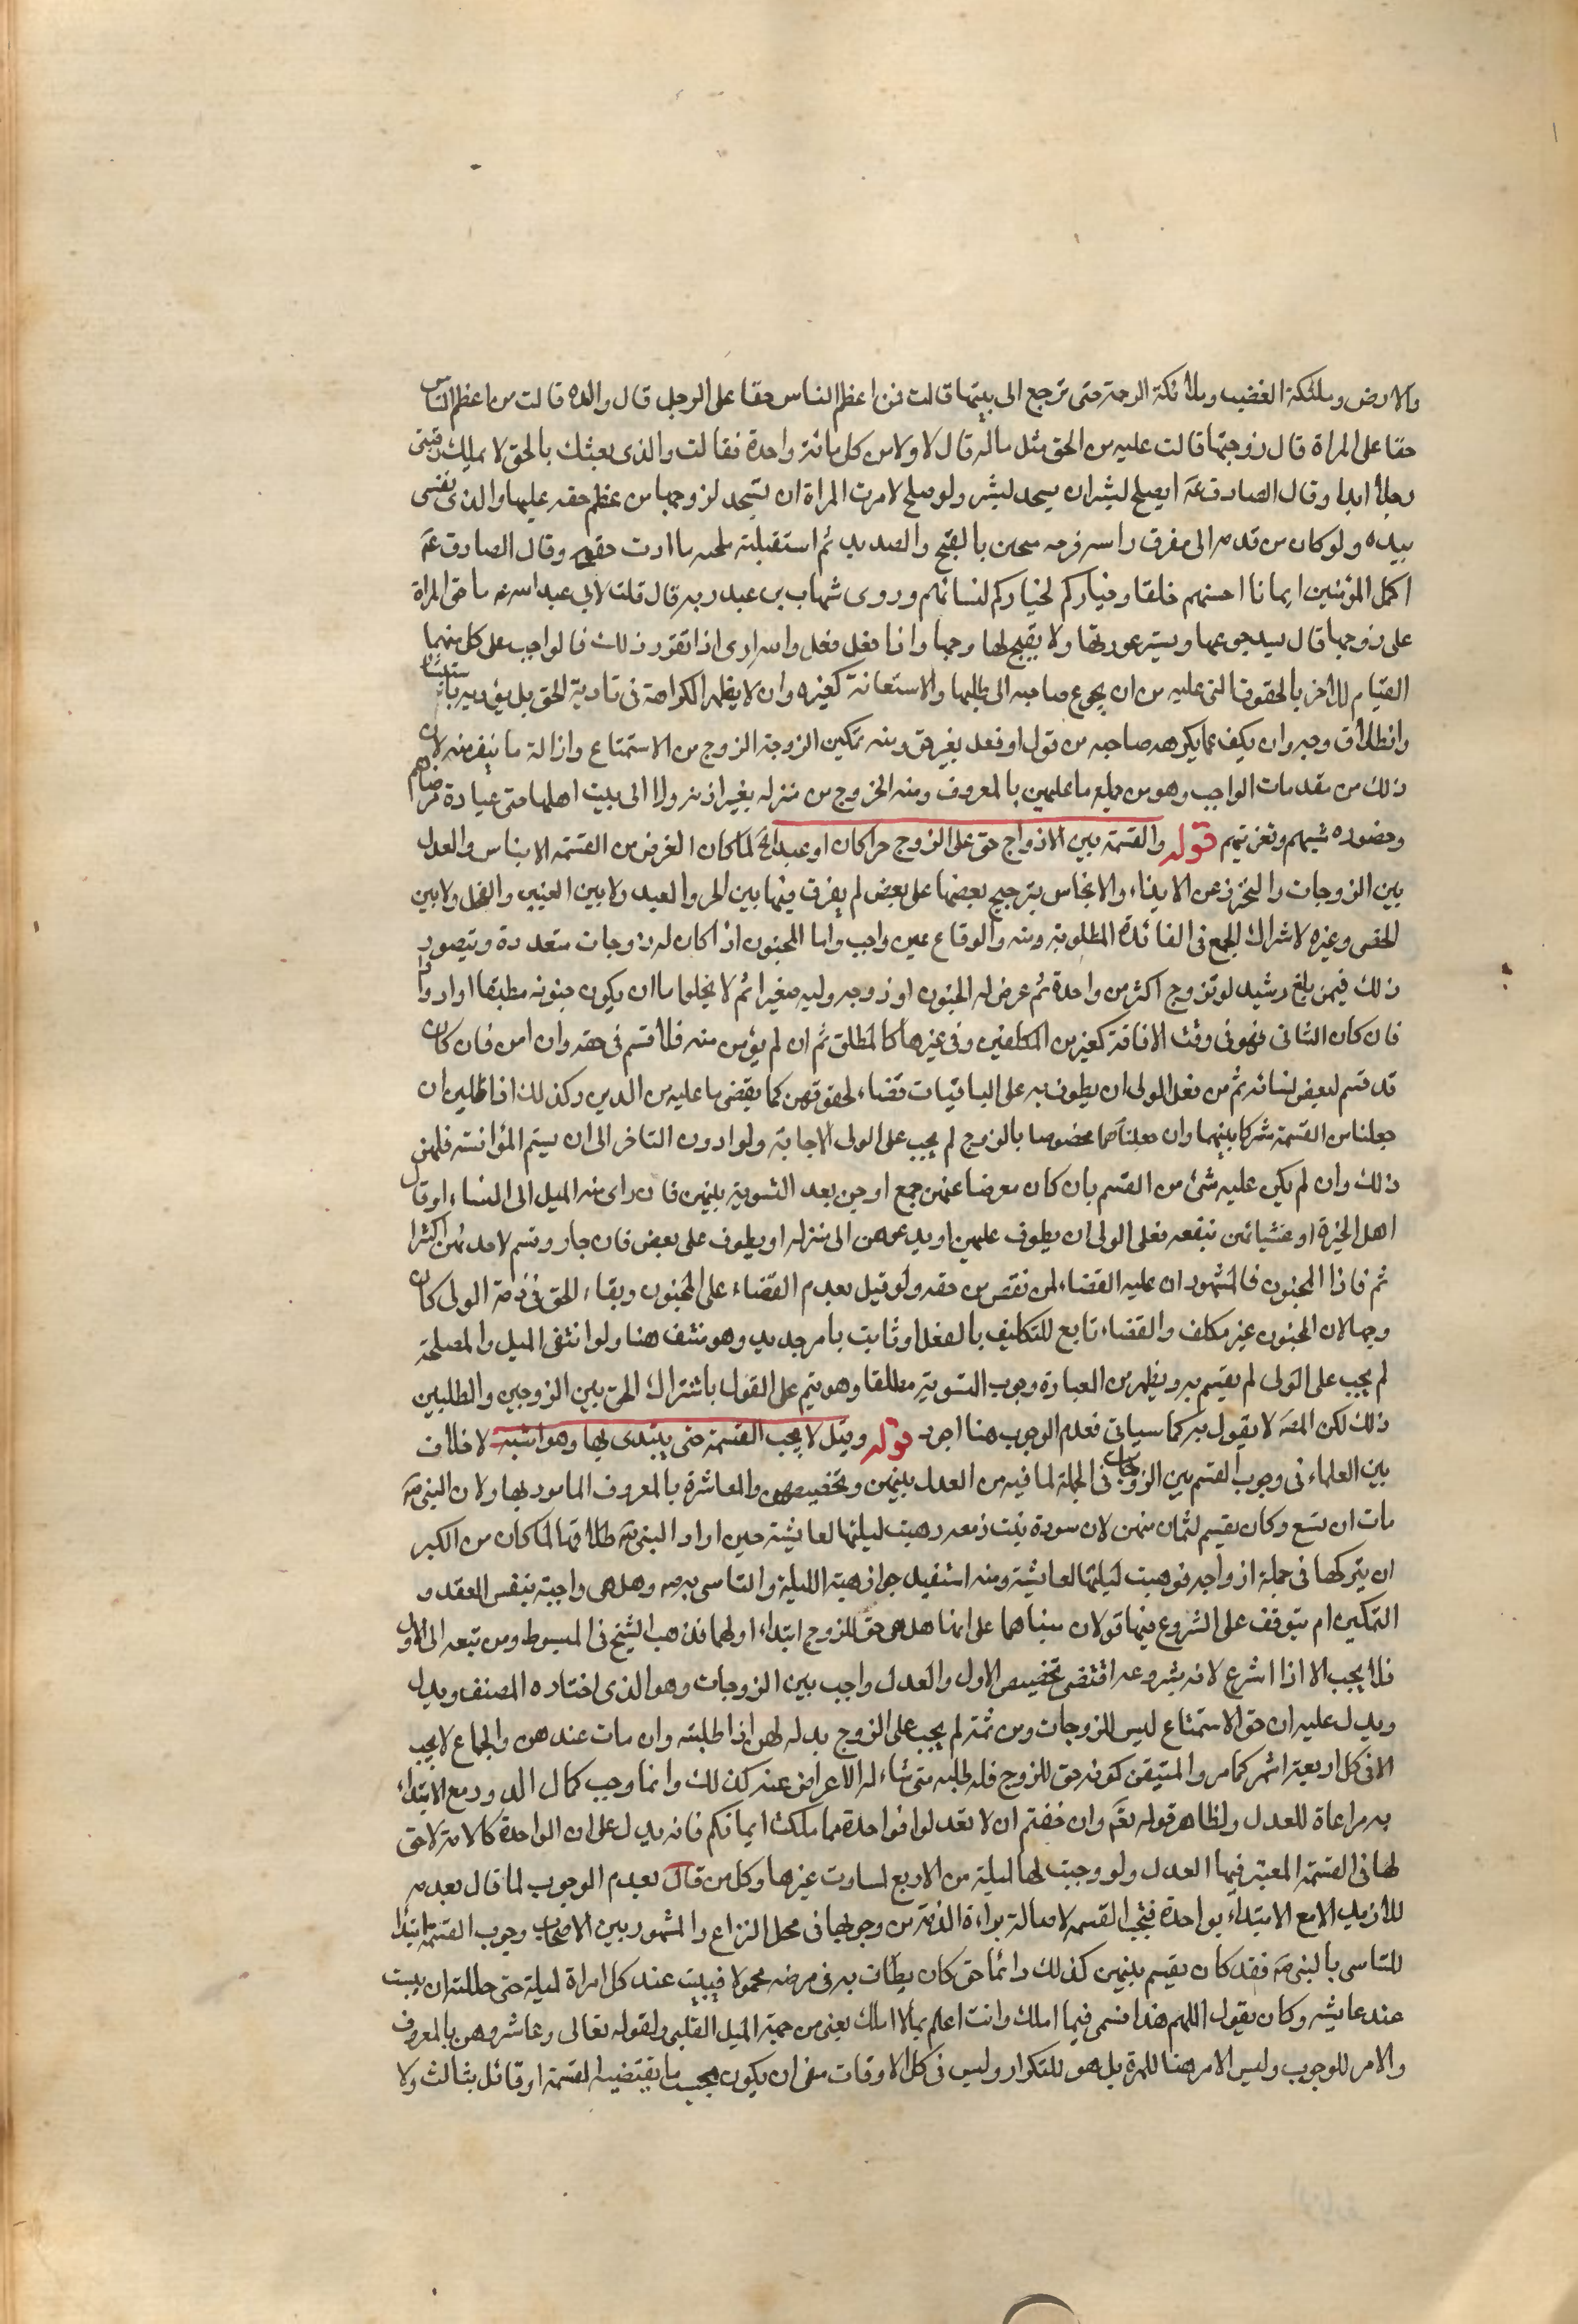 والارض وملئكة الغضب وملائكة الرحمة حتى ترجع الى بيتها قالت فمن اعظم الناس حقا على الرجل قال والده قالت من اعظم الناس
حقا على المراة قال زوجها قالت عليه من الحق مثل ماله قال لا ولا من كل مائة واحدة فقالت والذى بعثك بالحق لا يملك رقبتى
رجلا ابدا وقال الصادق عۤ ايصلح لبشر ان يسجد لبشر ولو صلح لامرت المراة ان تسجد لزوجها من عظم حقه عليها والذى نفسى
بيده ولو كان من قدمه الى مفرق راسه قرحه بالقيح والصديد ثم استقبلته ما ادت حقه وقال الصادق عۤ
اكمل المؤمنين ايمانا احسنهم خلقا وخياركم لخياركم لنسائهم وروى شهاب بن عبد ربه قال قلت لابى عبد الله عۤ ما حق المراة
على زوجها قال يسد جوعها ويستر عورتها ولا يقبح لها وجها واذا فعل اذا تقرر ذلك فالواجب على كل منهما
القيام للاخر بالحقوق التى عليه من ان يحوج صاحبه الى طلبها والاستعانة كغيره وان لا يظهر الكراهة فى تادية الحق بل يؤديه باستبشار
وانطلاق وجه وان يكف عما يكرهه صاحبه من قول او فعل بغير حق ومنه تمكين الزوجة الزوج من الاستمتاع وازالة ما ينفر منه لان
ذلك من مقدمات الواجب وهو من جملة ما عليهن بالمعروف ومنه الخروج من منزله بغير اذنه ولا الى بيت اهلها حتى عيادة مرضاهم
وحضوره ميتهم وتعزيتهم قوله والقسمة بين الازواج حق على الزوج حرا كان او عبدا الخ لما كان الغرض من القسمة الايناس والعدل
بين الزوجات والتحرز عن الايذاء والايحاش بترجيح بعضها على بعض لم يفرق فيها بين الحر والعبد ولا بين العنين والفحل ولا بين
الخصى وغيره لاشراك الجمع فى الفائدة المطلوبة ومنه والوقاع غير واجب واما المجنون اذا كان له زوجات متعددة ويتصور
ذلك فيمن بلغ رشيد لو تزوج اكثر من واحدة ثم عرض له الجنون او زوجه وليه صغيرا ثم لا يخلو اما ان يكون جنونه مطبقا او ادوارا
فان كان الثانى فهو فى وقت الافاقة كغيره من المكلفين وفى غيرها كالمطلق ثم ان لم يؤمن منه فلا قسم فى حقه وان امن فان كان
قد قسم لبعض نسائه ثم جن فعلى الولى ان يطوف به على الباقيات قضاء لحقوقهن كما يقضى ما عليه من الدين وكذلك اذا طلبن ان
جعلنا من القسمة شركا بينهما وان جعلنا حقا مخصوصا بالزوج لم يجب على الولى الاجابة ولو اردن التاخر الى ان يستم المؤانسة فلهن
ذلك وان لم يكن عليه شئ من القسم بان كان معرضا عنهن جمع او جن بعد التسوية بينهن فان راى منه الميل الى النساء او قال
اهل الخبرة ان غشيانهن ينفعه فعلى الولى ان يطوف عليهن او يدعوهن الى منزله او يطوف على بعض فان جار وقسم لاحدىهن اكثر
ثم فاذا المجنون فالمشهور ان عليه القضاء لمن نقص من حقه ولو قيل بعدم القضاء على المجنون وبقاء الحق فى ذمة الولى كان
وجها لان المجنون غير مكلف والقضاء تابع للتكليف بالفعل او ثابت بامر جديد وهو منتف هنا ولو انتفى الميل والمصلحة
لم يجب على الولى لم يقسم به ويظهر من العبارة وجوب التسوية مطلقا وهو يتم على القول باشتراك الحق بين الزوجين والطلبين
ذلك لكن المصۤ لا يقول به كما سياتى فعدم الوجوب هنا اجود قوله وقيل لا يجب القسمة حتى يبتدى بها وهو اشبه لا خلاف
بين العلماء فى وجوب القسم بين الزوجات فى الجملة لما فيه من العدل بينهن وتحصينهن والمعاشرة بالمعروف المامور بها ولان النبى صۤ
مات عن تسع وكان يقسم لثمان منهن لان سودة بنت زمعه وهبت ليلتها لعائشة حين اراد النبى صۤ طلاقها لما كان من الكبر
ان يتركها فى جملة ازواجه فوهبت ليلتها لعائشة ومنه استفيد جواز هبة الليلة والتاسى به صۤ وهل هى واجبة بنفس العقد و
التمكين ام يتوقف على الشروع فيها قولان مبناهما على انها هل هى حق للزوج ابتداء او لهما فذهب الشيخ فى المبسوط ومن تبعه الى الاول
فلا يجب الا اذا اشرع لانه بشروعه اقتضى تخصيص الاول والعدل واجب بين الزوجات وهو الذى اختاره المصنف ويدل
ويدل عليه ان حق الاستمتاع ليس للزوجات ومن ثمة لم يجب على الزوج بذله لهن اذا طلبته وان مات عندهن والجماع لا يجب
الا فى كل اربعة اشهر كما مر والمتيقن كونه حق للزوج فله طلبه متى شاء له الاعراض عنه كذلك وانما وجب كمال الدور مع الابتداء
به مراعاة للعدل ولظاهر قوله تعۤ وان خفتم ان لا تعدلوا فواحدة مما ملكت ايمانكم فانه يدل على ان الواحدة كالامة لا حق
لها فى القسمة المعتبر فيها العدل ولو وجبت لها ليلة من الاربع لساوت غيرها وكل من قال بعدم الوجوب لما قال بعدمه
للازيد الا مع الابتداء بواحدة فيجب القسمه لاصالة براءة الذمة من وجوبها فى محل النزاع والمشهور بين الاصحاب وجوب القسمة ابتدا
للتاسى بالنبى صۤ فقد كان يقسم بينهن كذلك دائما حتى كان يطاف به فى مرضه محمولا فيبيت عند كل امراة ليلة حتى حللنه ان يبيت
عند عايشه وكان يقول اللهم هذا قسمى فيما املك وانت اعلم بما لا املك يعنى من جهة الميل القلبى ولقوله تعالى وعاشروهن بالمعروف
والامر للوجوب وليس الامر هنا للمرة بل هو للتكرار وليس فى كل الاوقات فى ان يكون يجب ما يقتضيه القسمة او قائل بثالث ولا